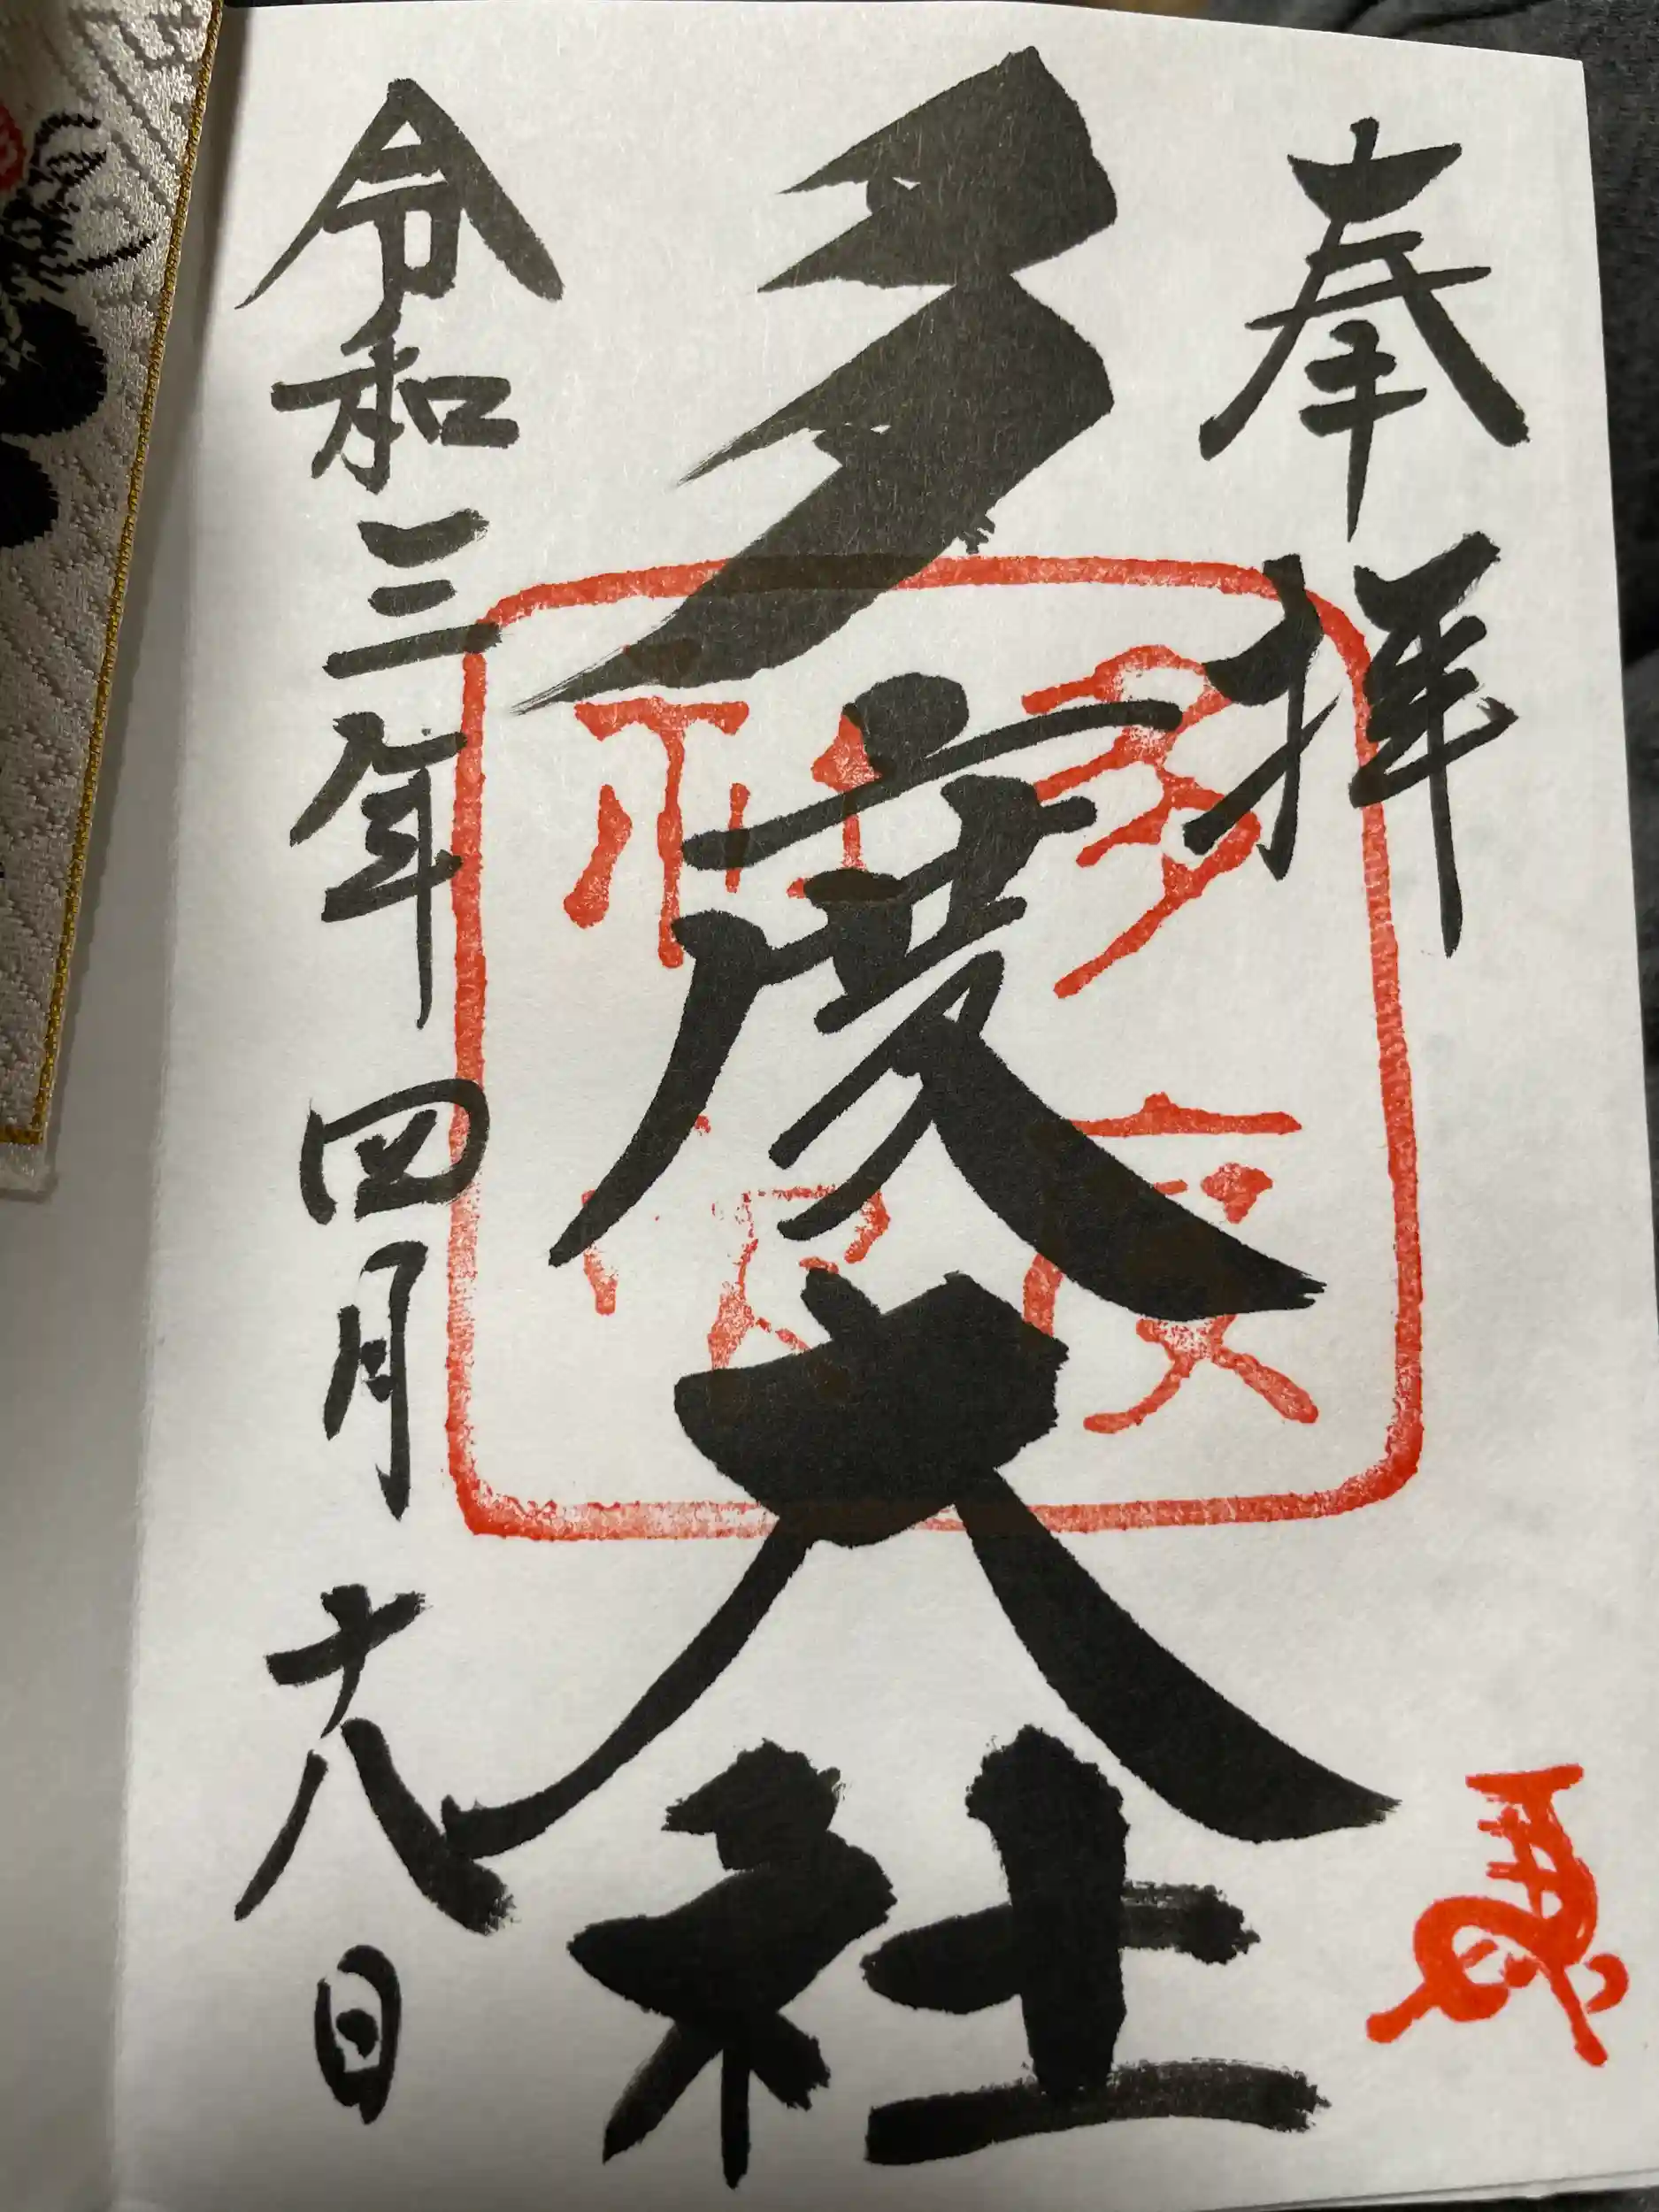 奉拝
多度大社
多度
神社
令和三年四月十八日